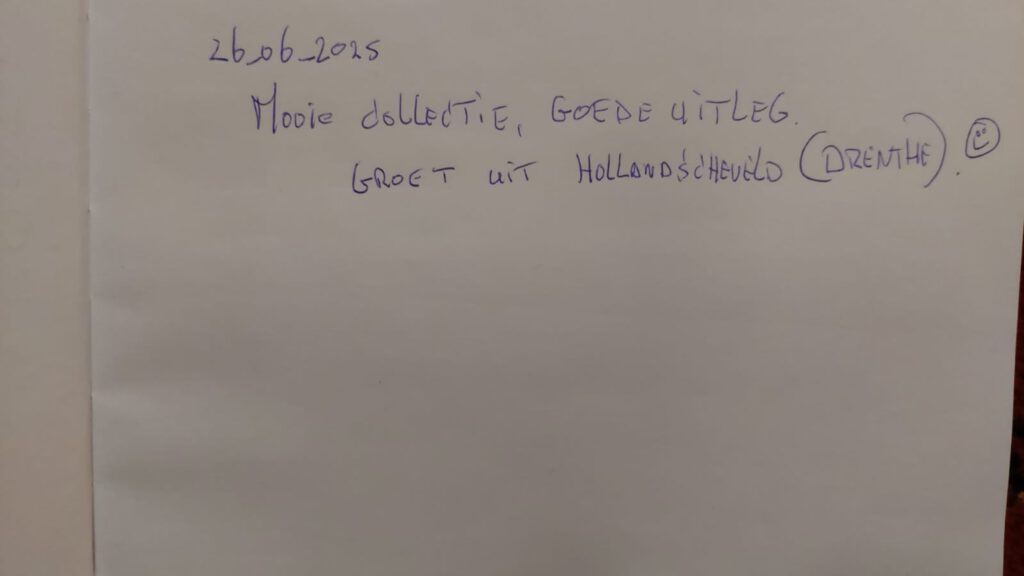 26-06-2025
Mooie collectie, GOEDE UITLEG.
GROET UIT HOLLANDSCHEVELD (DRENTHE).